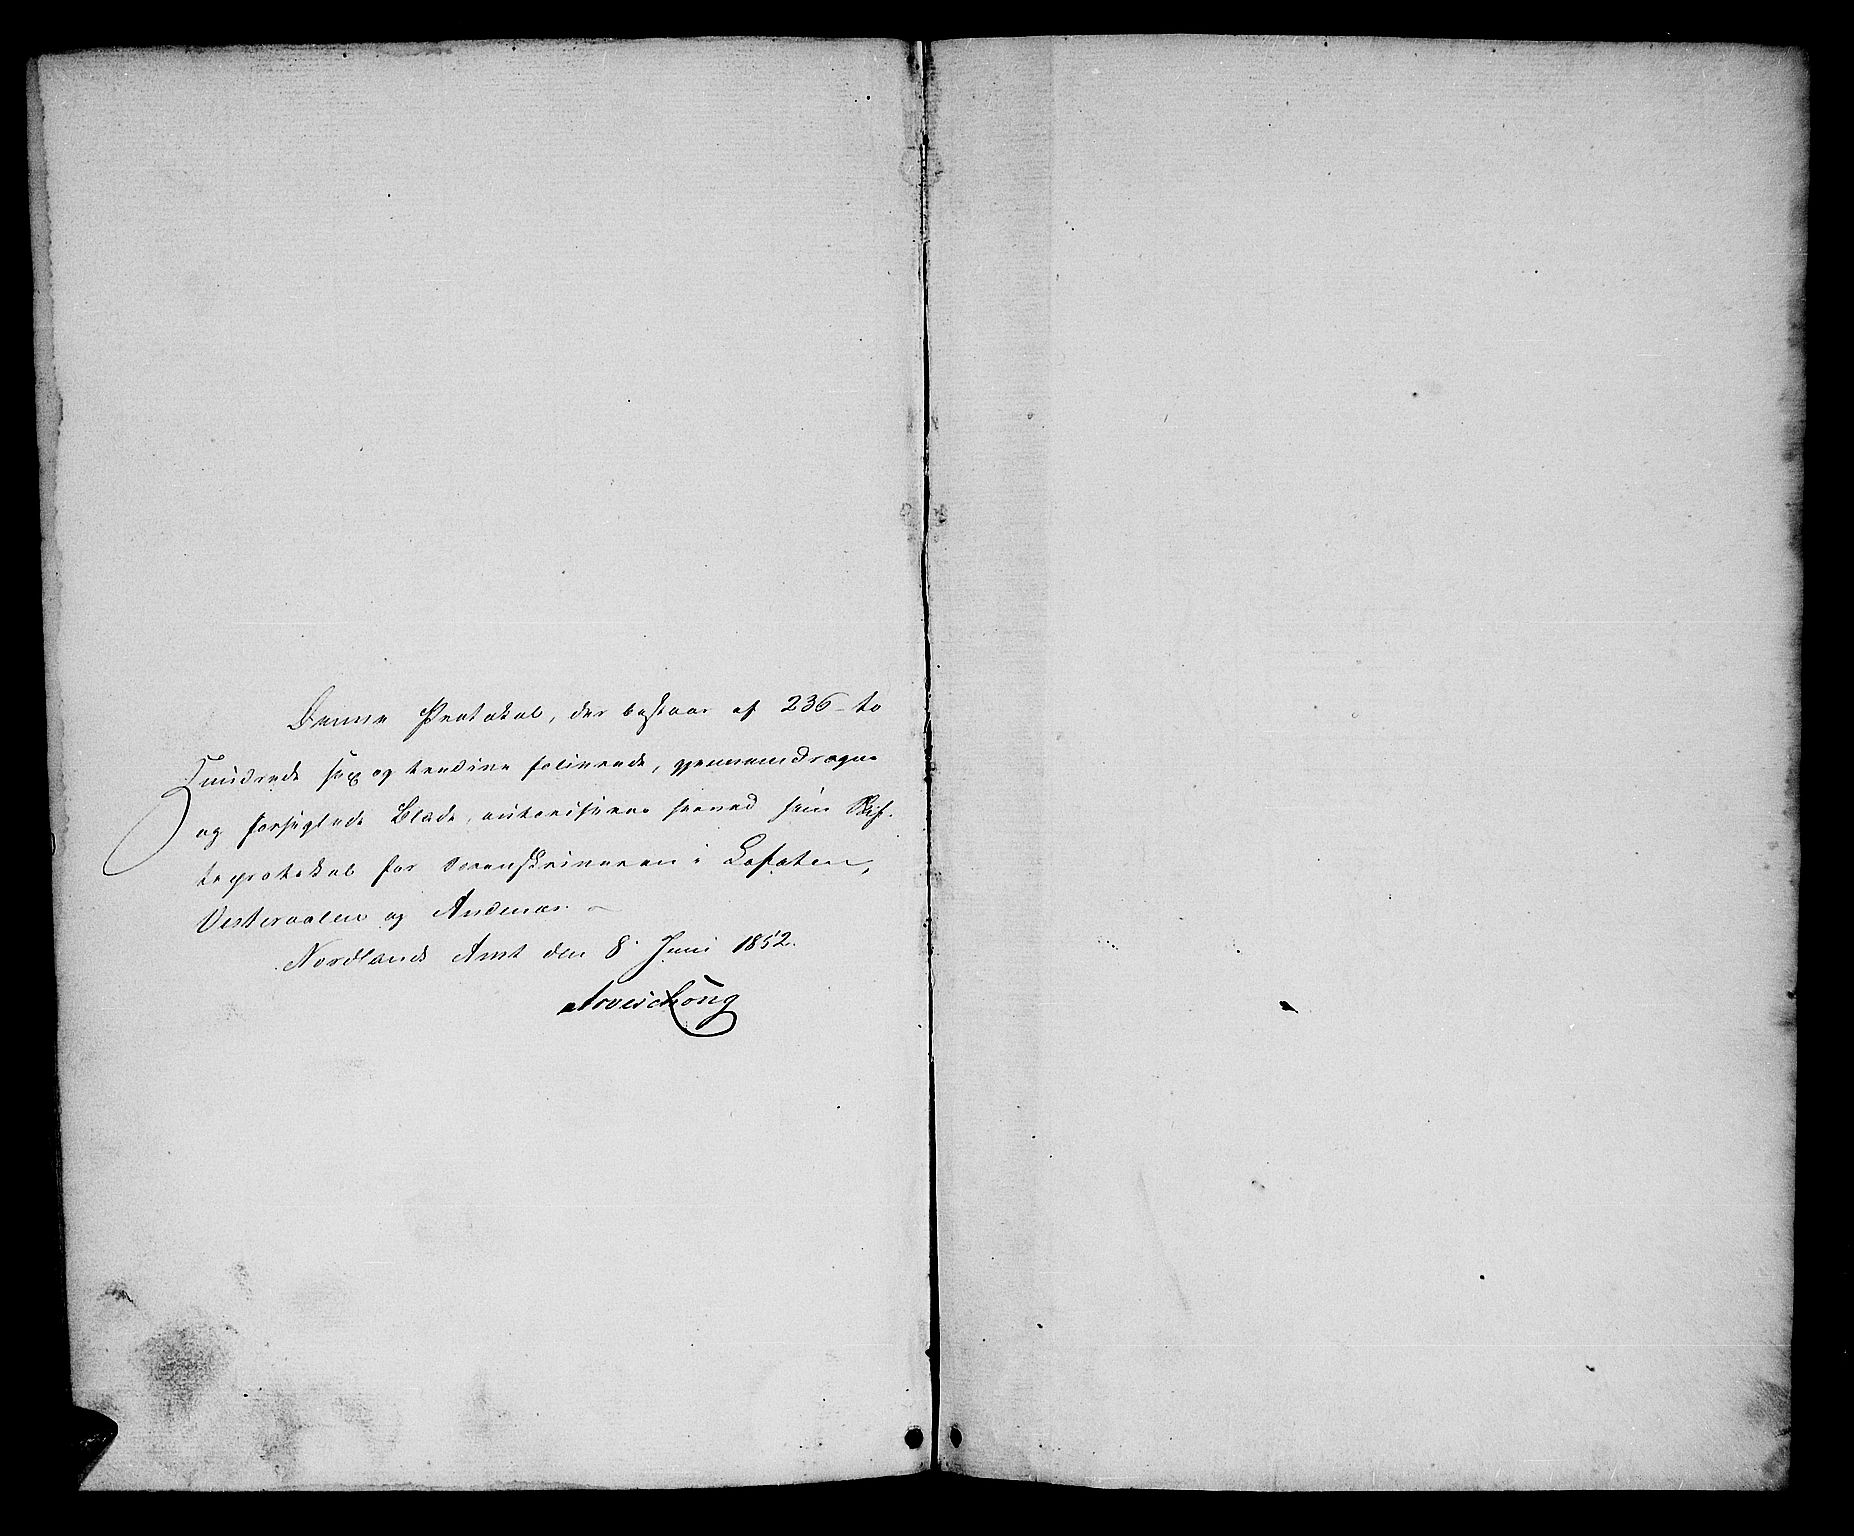 Denne Protokol, der bestaar af 236 - to
Hundrede sex og tredive folierede, gjennemdragne
og forseglede Blade, autoriseres herved som Skif-
teprotokol for Sorenskriveren i Lofoten,
Vesteraalen og Andenæs. -
Nordlands Amt den 8 Juni 1852.